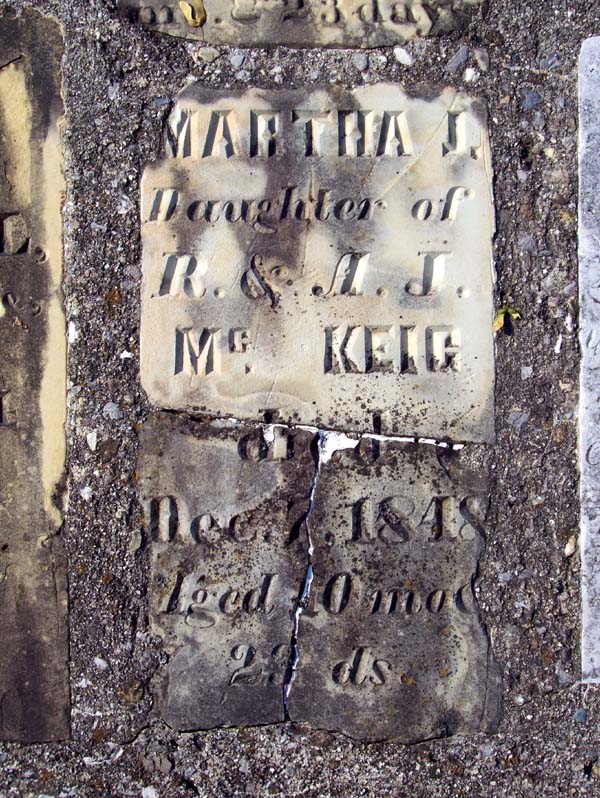 23 days
MARTHA J.
Daughter of
R. & A. J.
Mc. KEIG
died
Dec. 7, 1848
Aged 10 mos
ds.
L,
&